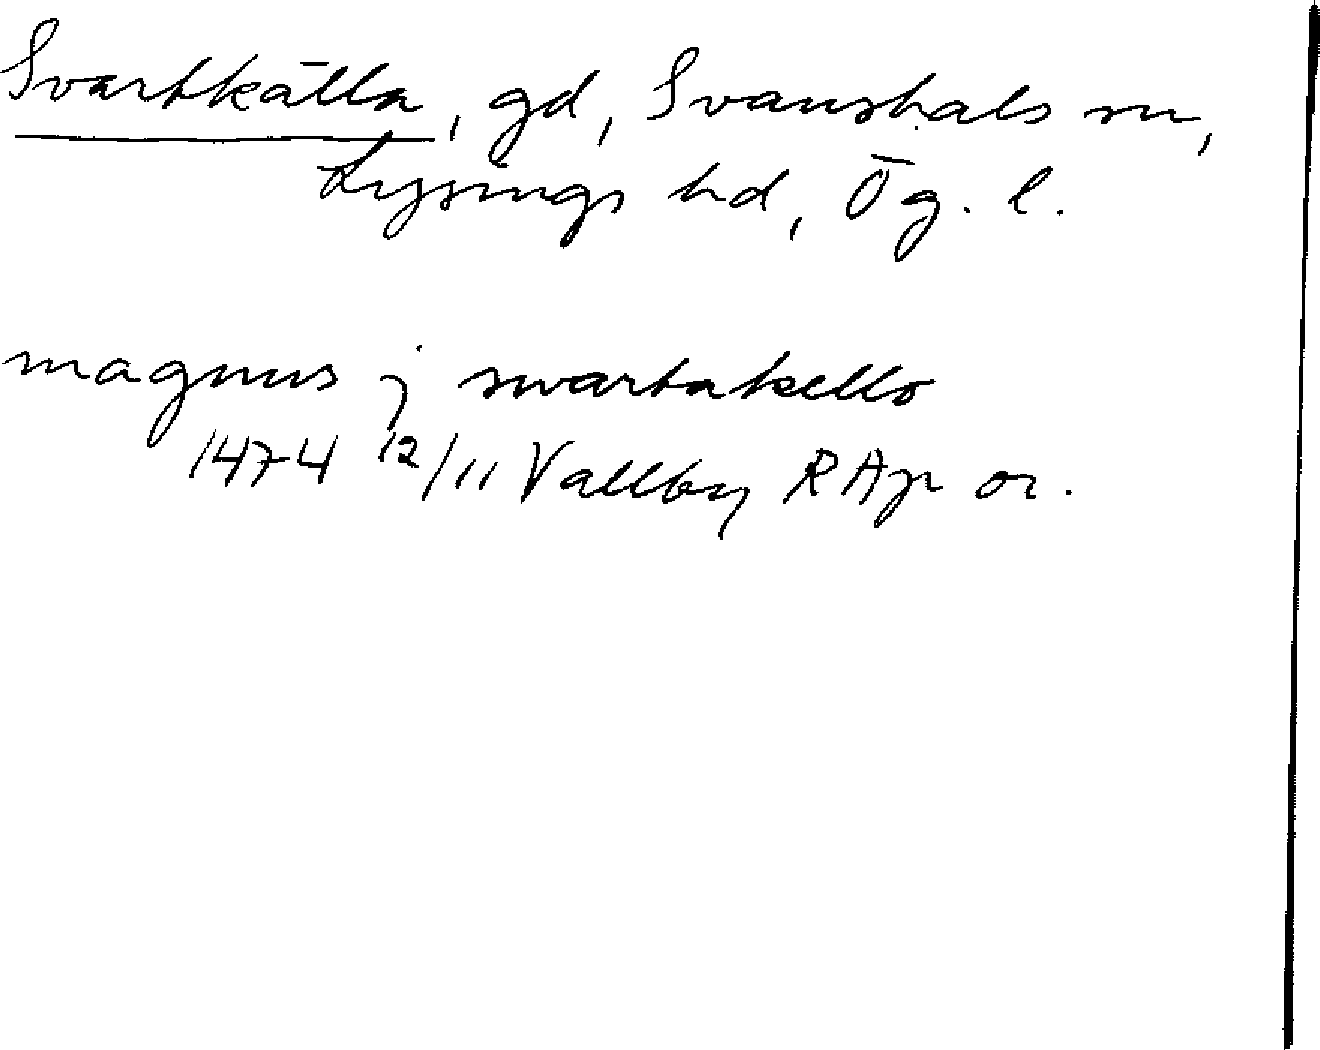 Svartkälla, gd, Svanshals sn,
Lysings hd, Ög. l.
magnus j swartakello
1474 12/11 Vallby RAp or.